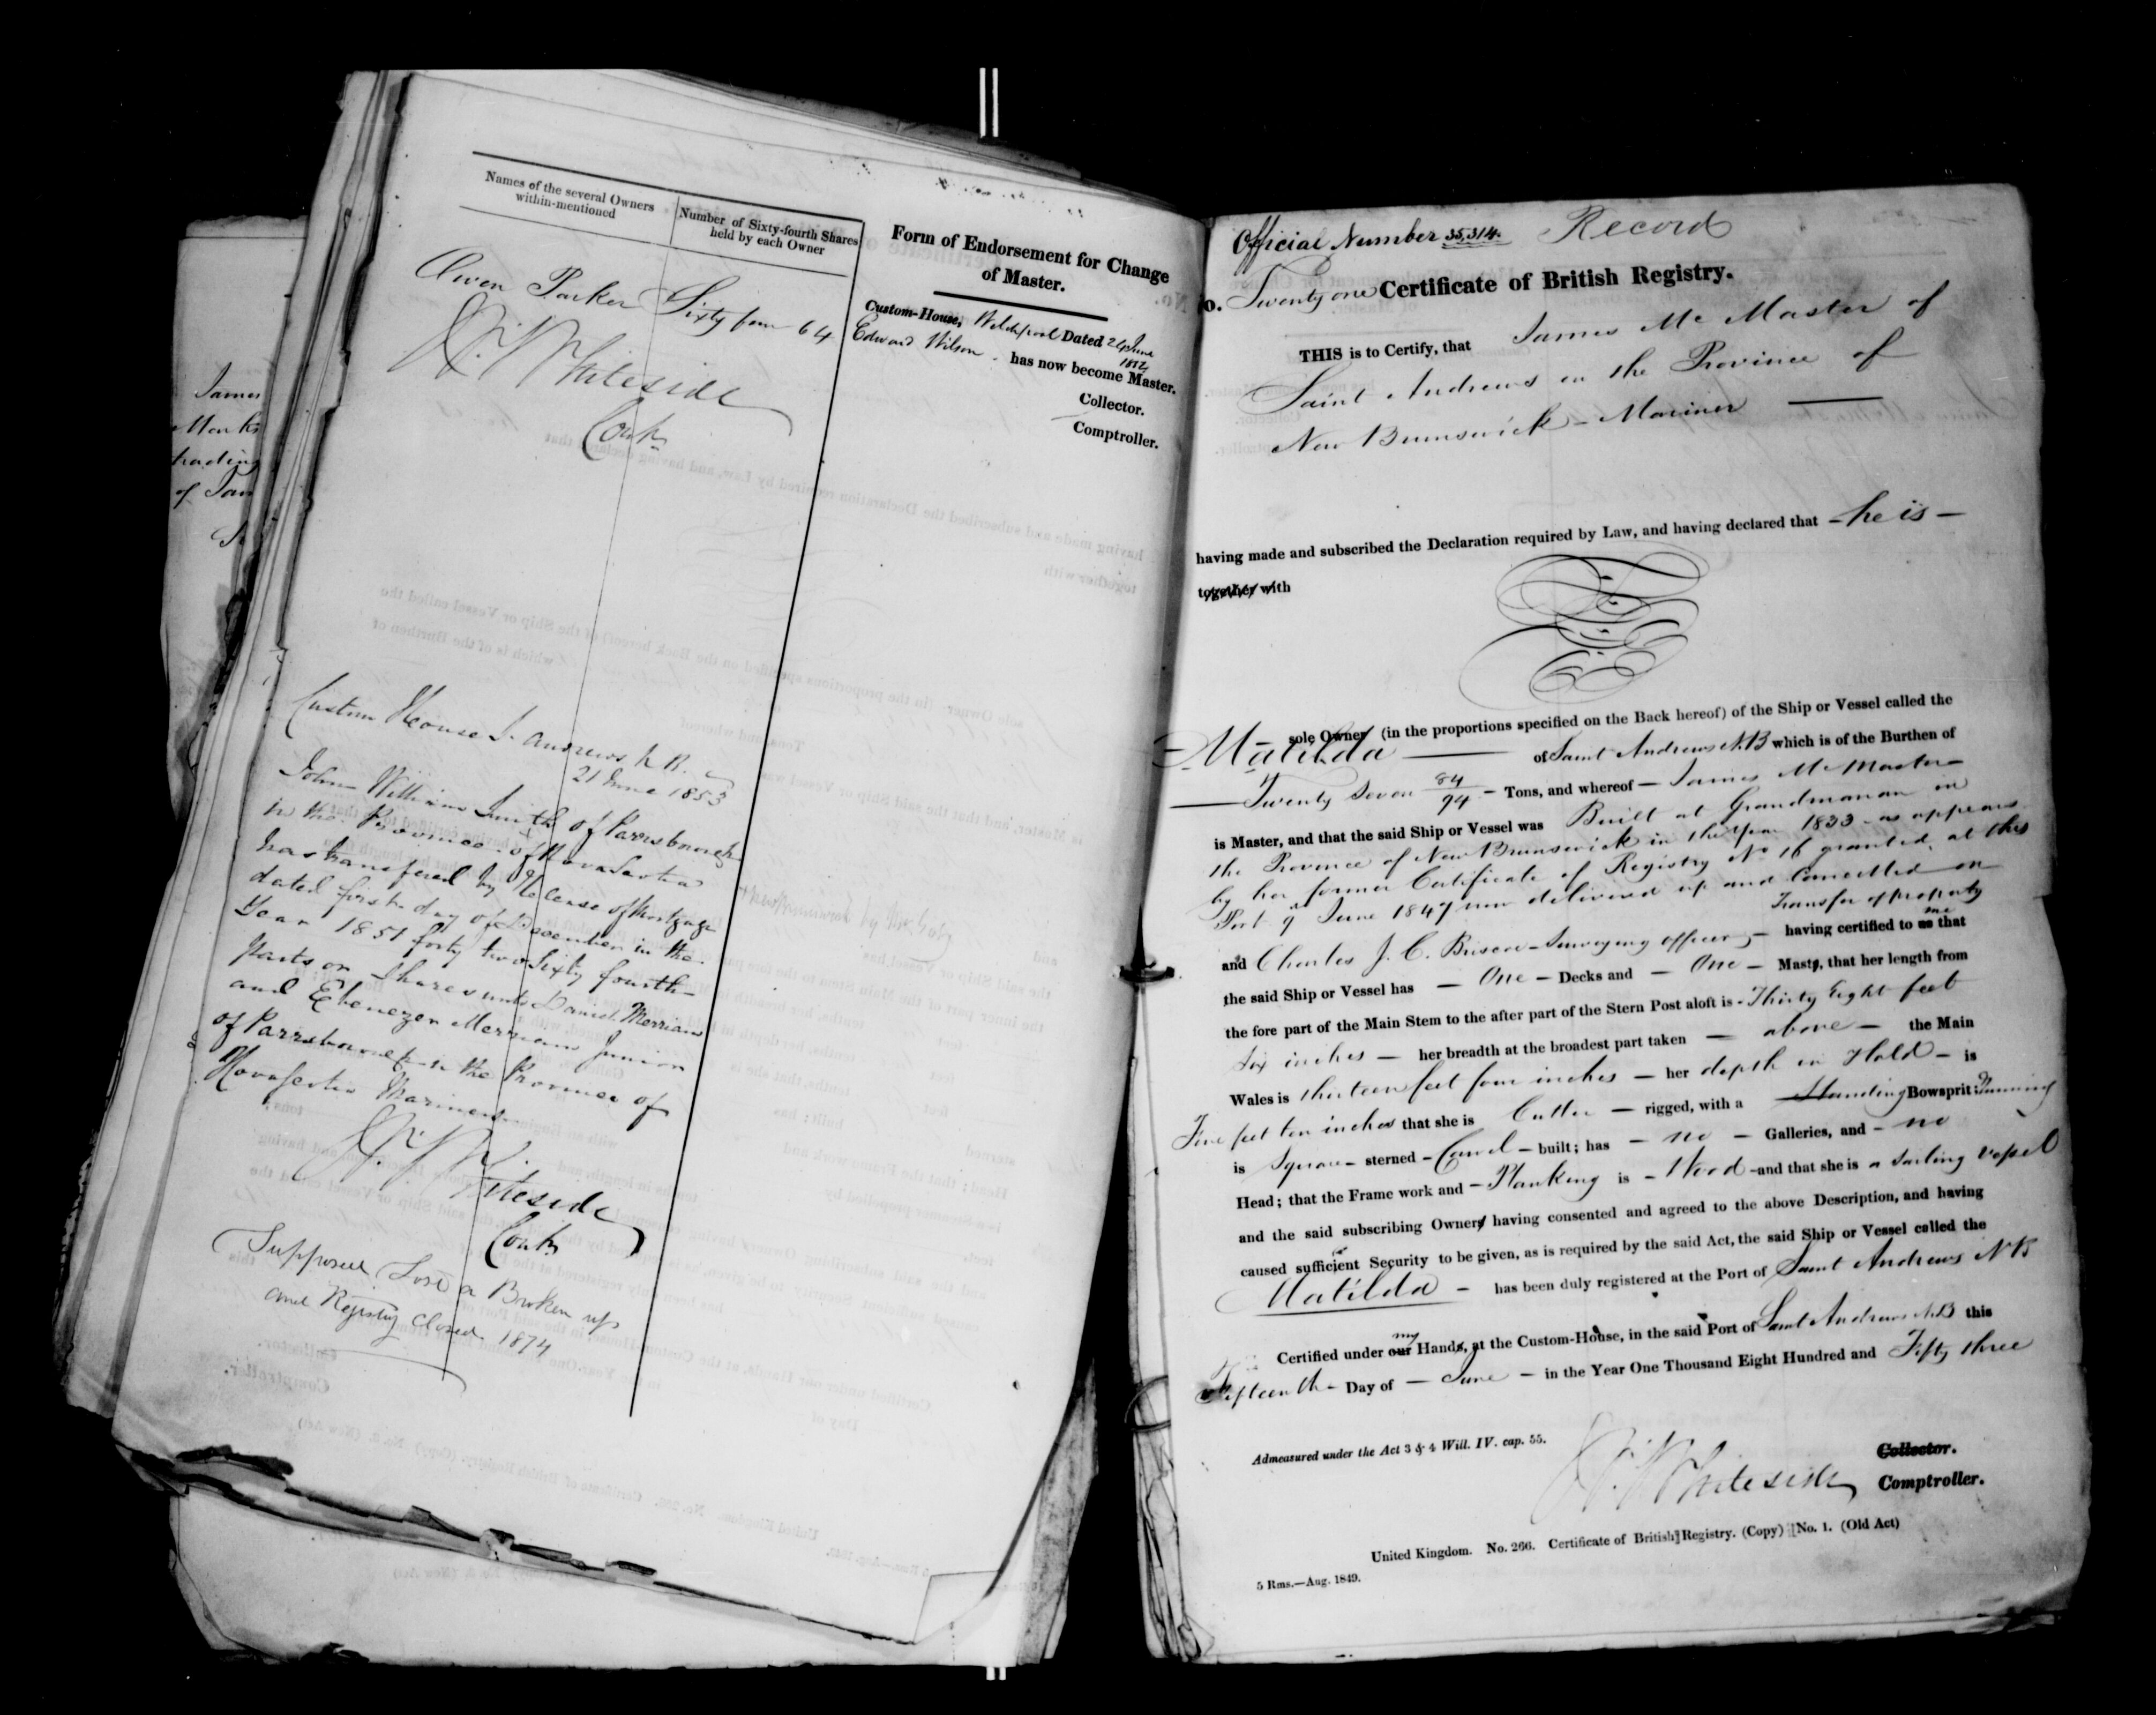 James
Marks
trading
of
Names of the several Owners
within-mentioned
Number of Sixty-fourth Shares
held by each Owner
Owen Parker Sixty four 64
Whiteside
Contr
Form of Endorsement for Change
of Master.
Custom-House, Welchpool Dated 24 June
Edward Wilson has now become Master.
Collector.
Comptroller.
Custom House St Andrews N.B.
21 June 1853
John William Smith of Parrsborough
in the Province of Nova Scotia
has transfered by Release of Mortgage
dated first day of December in the
Year 1851 forty two Sixty fourth
parts or Shares unto Daniel Merriam
and Ebenezer Merriam Junior
of Parrsborough in the Province of
Nova Scotia Mariners
Whiteside
Contr
Supposed Lost or Broken up
and Registry Closed 1874
Official Number 35,314. Record
o. Twenty one Certificate of British Registry.
THIS is to Certify, that James Mc Master of
Saint Andrews in the Province of
New Brunswick - Mariner
having made and subscribed the Declaration required by Law, and having declared that - he is -
together with
sole Owner (in the proportions specified on the Back hereof) of the Ship or Vessel called the
Matilda of Saint Andrews N.B which is of the Burthen of
Twenty Seven 84/94 - Tons, and whereof - James Mc Master -
is Master, and that the said Ship or Vessel was Built at Grandmanan in
the Province of New Brunswick in the Year 1833 - as appears
by her former Certificate of Registry No 16 granted at this
Port 9 June 1847 now delivered up and Cancelled on
Transfer of property
and Charles J. C. Briscoe - Surveying officer, - having certified to us me that
the said Ship or Vessel has - One - Decks and - One - Masts, that her length from
the fore part of the Main Stem to the after part of the Stern Post aloft is - Thirty Eight feet
Six inches - her breadth at the broadest part taken - above - the Main
Wales is thirteen feet four inches - her depth in Hold - is
Five feet ten inches that she is Cutter - rigged, with a Standing Bowsprit; Running
is Square - sterned - Carvel - built; has - no - Galleries, and - no
Head; that the Frame work and - Planking is - Wood - and that she is a Sailing vessel
and the said subscribing Owners having consented and agreed to the above Description, and having
caused sufficient Security to be given, as is required by the said Act, the said Ship or Vessel called the
Matilda - has been duly registered at the Port of Saint Andrews NB
Certified under our my Hands, at the Custom-House, in the said Port of Saint Andrews N.B this
Fifteenth - Day of - June - in the Year One Thousand Eight Hundred and Fifty three
Admeasured under the Act 3 & 4 Will. IV. cap. 55.
Whiteside
Collector.
Comptroller.
United Kingdom. No. 266. Certificate of British Registry. (Copy) No. 1. (Old Act)
5 Rms.—Aug. 1849.